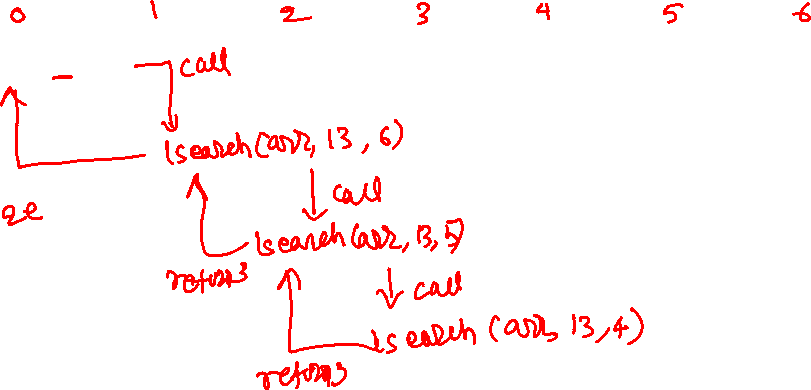 0 1 2 3 4 5 6
call
lsearch(arr, 13, 6)
call
lsearch(arr, 13, 5)
return 3
call
lsearch (arr, 13, 4)
return 3